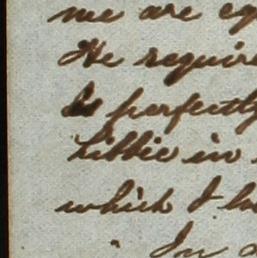 me are eq
He require
is perfectly
Libbie in
which I ha
In a